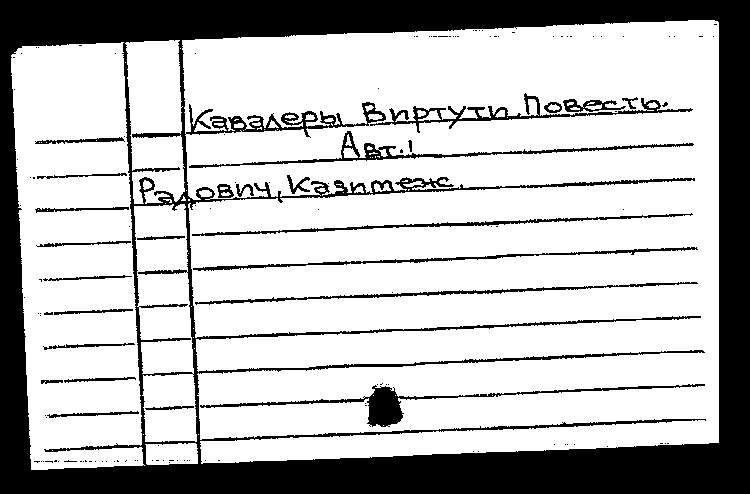 Кавалеры Виртути. Повесть.
Авт.:
Радович, Казимеж.